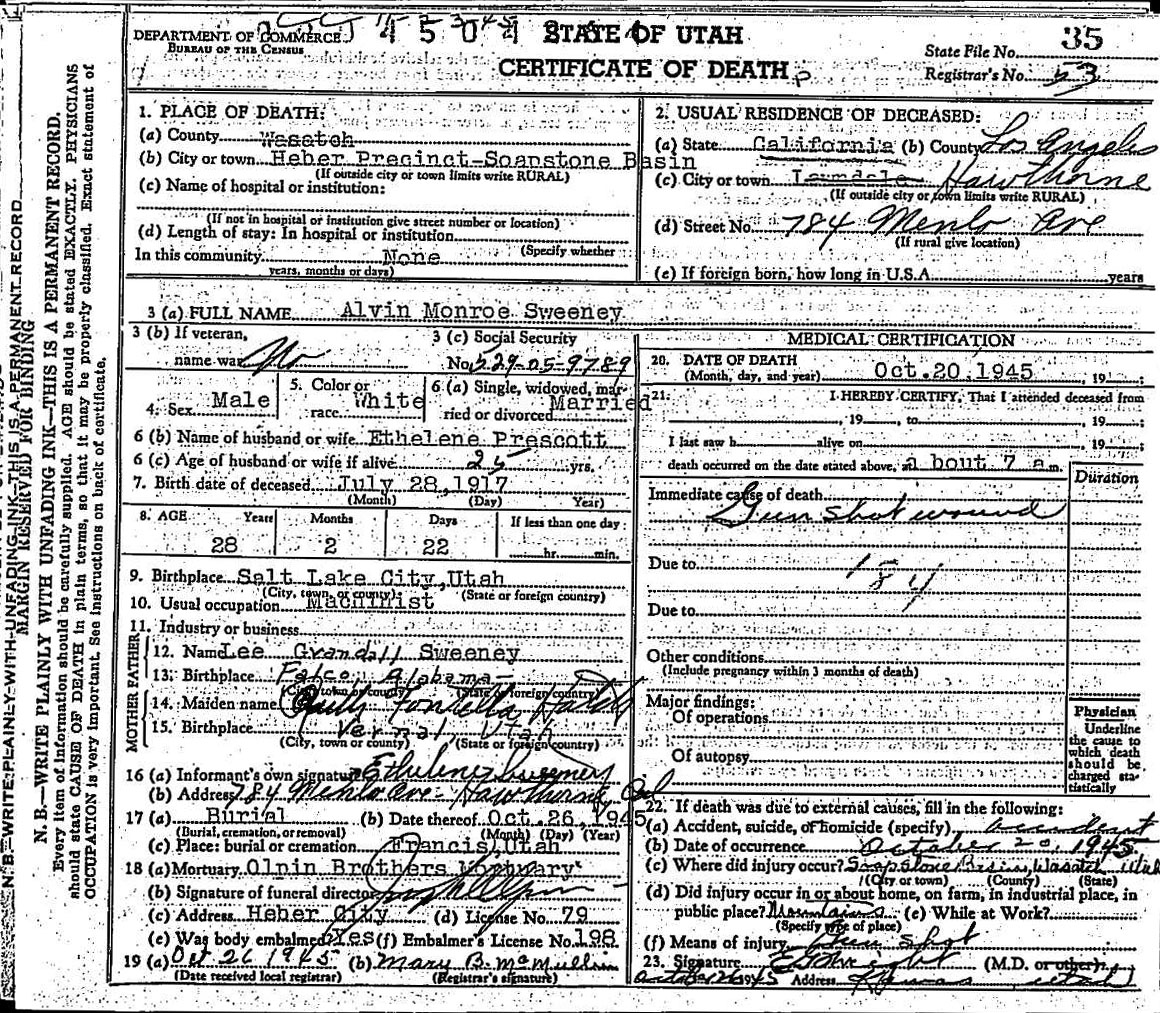 DEPARTMENT OF COMMERCE
BUREAU OF THE CENSUS
STATE OF UTAH
CERTIFICATE OF DEATH
State File No. 35
Registrar's No. 53
N. B.—WRITE PLAINLY WITH UNFADING INK—THIS IS A PERMANENT RECORD
MARGIN RESERVED FOR BINDING
N. B.—WRITE PLAINLY WITH UNFADING INK—THIS IS A PERMANENT RECORD.
Every item of information should be carefully supplied. AGE should be stated EXACTLY. PHYSICIANS
should state CAUSE OF DEATH in plain terms, so that it may be properly classified. Exact statement of
OCCUPATION is very important. See instructions on back of certificate.
1. PLACE OF DEATH:
(a) County Wasatch
(b) City or town Heber Precinct-Soapstone Basin
(If outside city or town limits write RURAL)
(c) Name of hospital or institution:
(If not in hospital or institution give street number or location)
(d) Length of stay: In hospital or institution
(Specify whether
In this community None
years, months or days)
2. USUAL RESIDENCE OF DECEASED:
(a) State California (b) County Los Angeles
(c) City or town Lawndale Hawthorne
(If outside city or town limits write RURAL)
(d) Street No. 784 Menlo Ave
(If rural give location)
(e) If foreign born, how long in U.S.A. years
3 (a) FULL NAME Alvin Monroe Sweeney
3 (b) If veteran,
name war No
3 (c) Social Security
No. 529-05-9789
4. Sex Male
5. Color or
race White
6 (a) Single, widowed, mar-
ried or divorced Married
6 (b) Name of husband or wife Ethelene Prescott
6 (c) Age of husband or wife if alive 25 yrs.
7. Birth date of deceased July 28,1917
(Month) (Day) Year)
8. AGE Years Months Days If less than one day
28 2 22 hr. min.
9. Birthplace Salt Lake City,Utah
(City, town, or county) (State or foreign country)
10. Usual occupation Machinist
11. Industry or business
FATHER
12. Name Lee Crandall Sweeney
13. Birthplace Falco, Alabama
(City, town or county) (State or foreign country)
MOTHER
14. Maiden name Fontella
15. Birthplace Vernal, Utah
(City, town or county) (State or foreign country)
16 (a) Informant's own signature Ethelene Sweeney
(b) Address 784 Menlo Ave - Hawthorne, Cal
17 (a) Burial (b) Date thereof Oct.26,1945
(Burial, cremation, or removal) (Month) (Day) (Year)
(c) Place: burial or cremation Francis,Utah
18 (a) Mortuary Olpin Brothers Mortuary
(b) Signature of funeral director
(c) Address Heber City (d) License No. 79
(e) Was body embalmed? Yes (f) Embalmer's License No. 198
19 (a) Oct 26 1945 (b) Mary B. McMullin
(Date received local registrar) (Registrar's signature)
MEDICAL CERTIFICATION
20. DATE OF DEATH
(Month, day, and year) Oct.20,1945 , 19 ;
21. I HEREBY CERTIFY, That I attended deceased from
, 19 , to , 19 ;
I last saw h alive on 19 ;
death occurred on the date stated above, at about 7 a m.
Duration
Immediate cause of death
Gun shot wound
Due to 184
Due to
Other conditions
(Include pregnancy within 3 months of death)
Major findings:
Of operations
Of autopsy
Physician
Underline
the cause to
which death
should be
charged sta-
tistically
22. If death was due to external causes, fill in the following:
(a) Accident, suicide, or homicide (specify) accident
(b) Date of occurrence October 20, 1945
(c) Where did injury occur? Soapstone Basin, Wasatch Utah
(City or town) (County) (State)
(d) Did injury occur in or about home, on farm, in industrial place, in
public place? Mountains (e) While at Work?
(Specify type of place)
(f) Means of injury Gun shot
23. Signature (M.D. or other)
1945 Address Kamas Utah